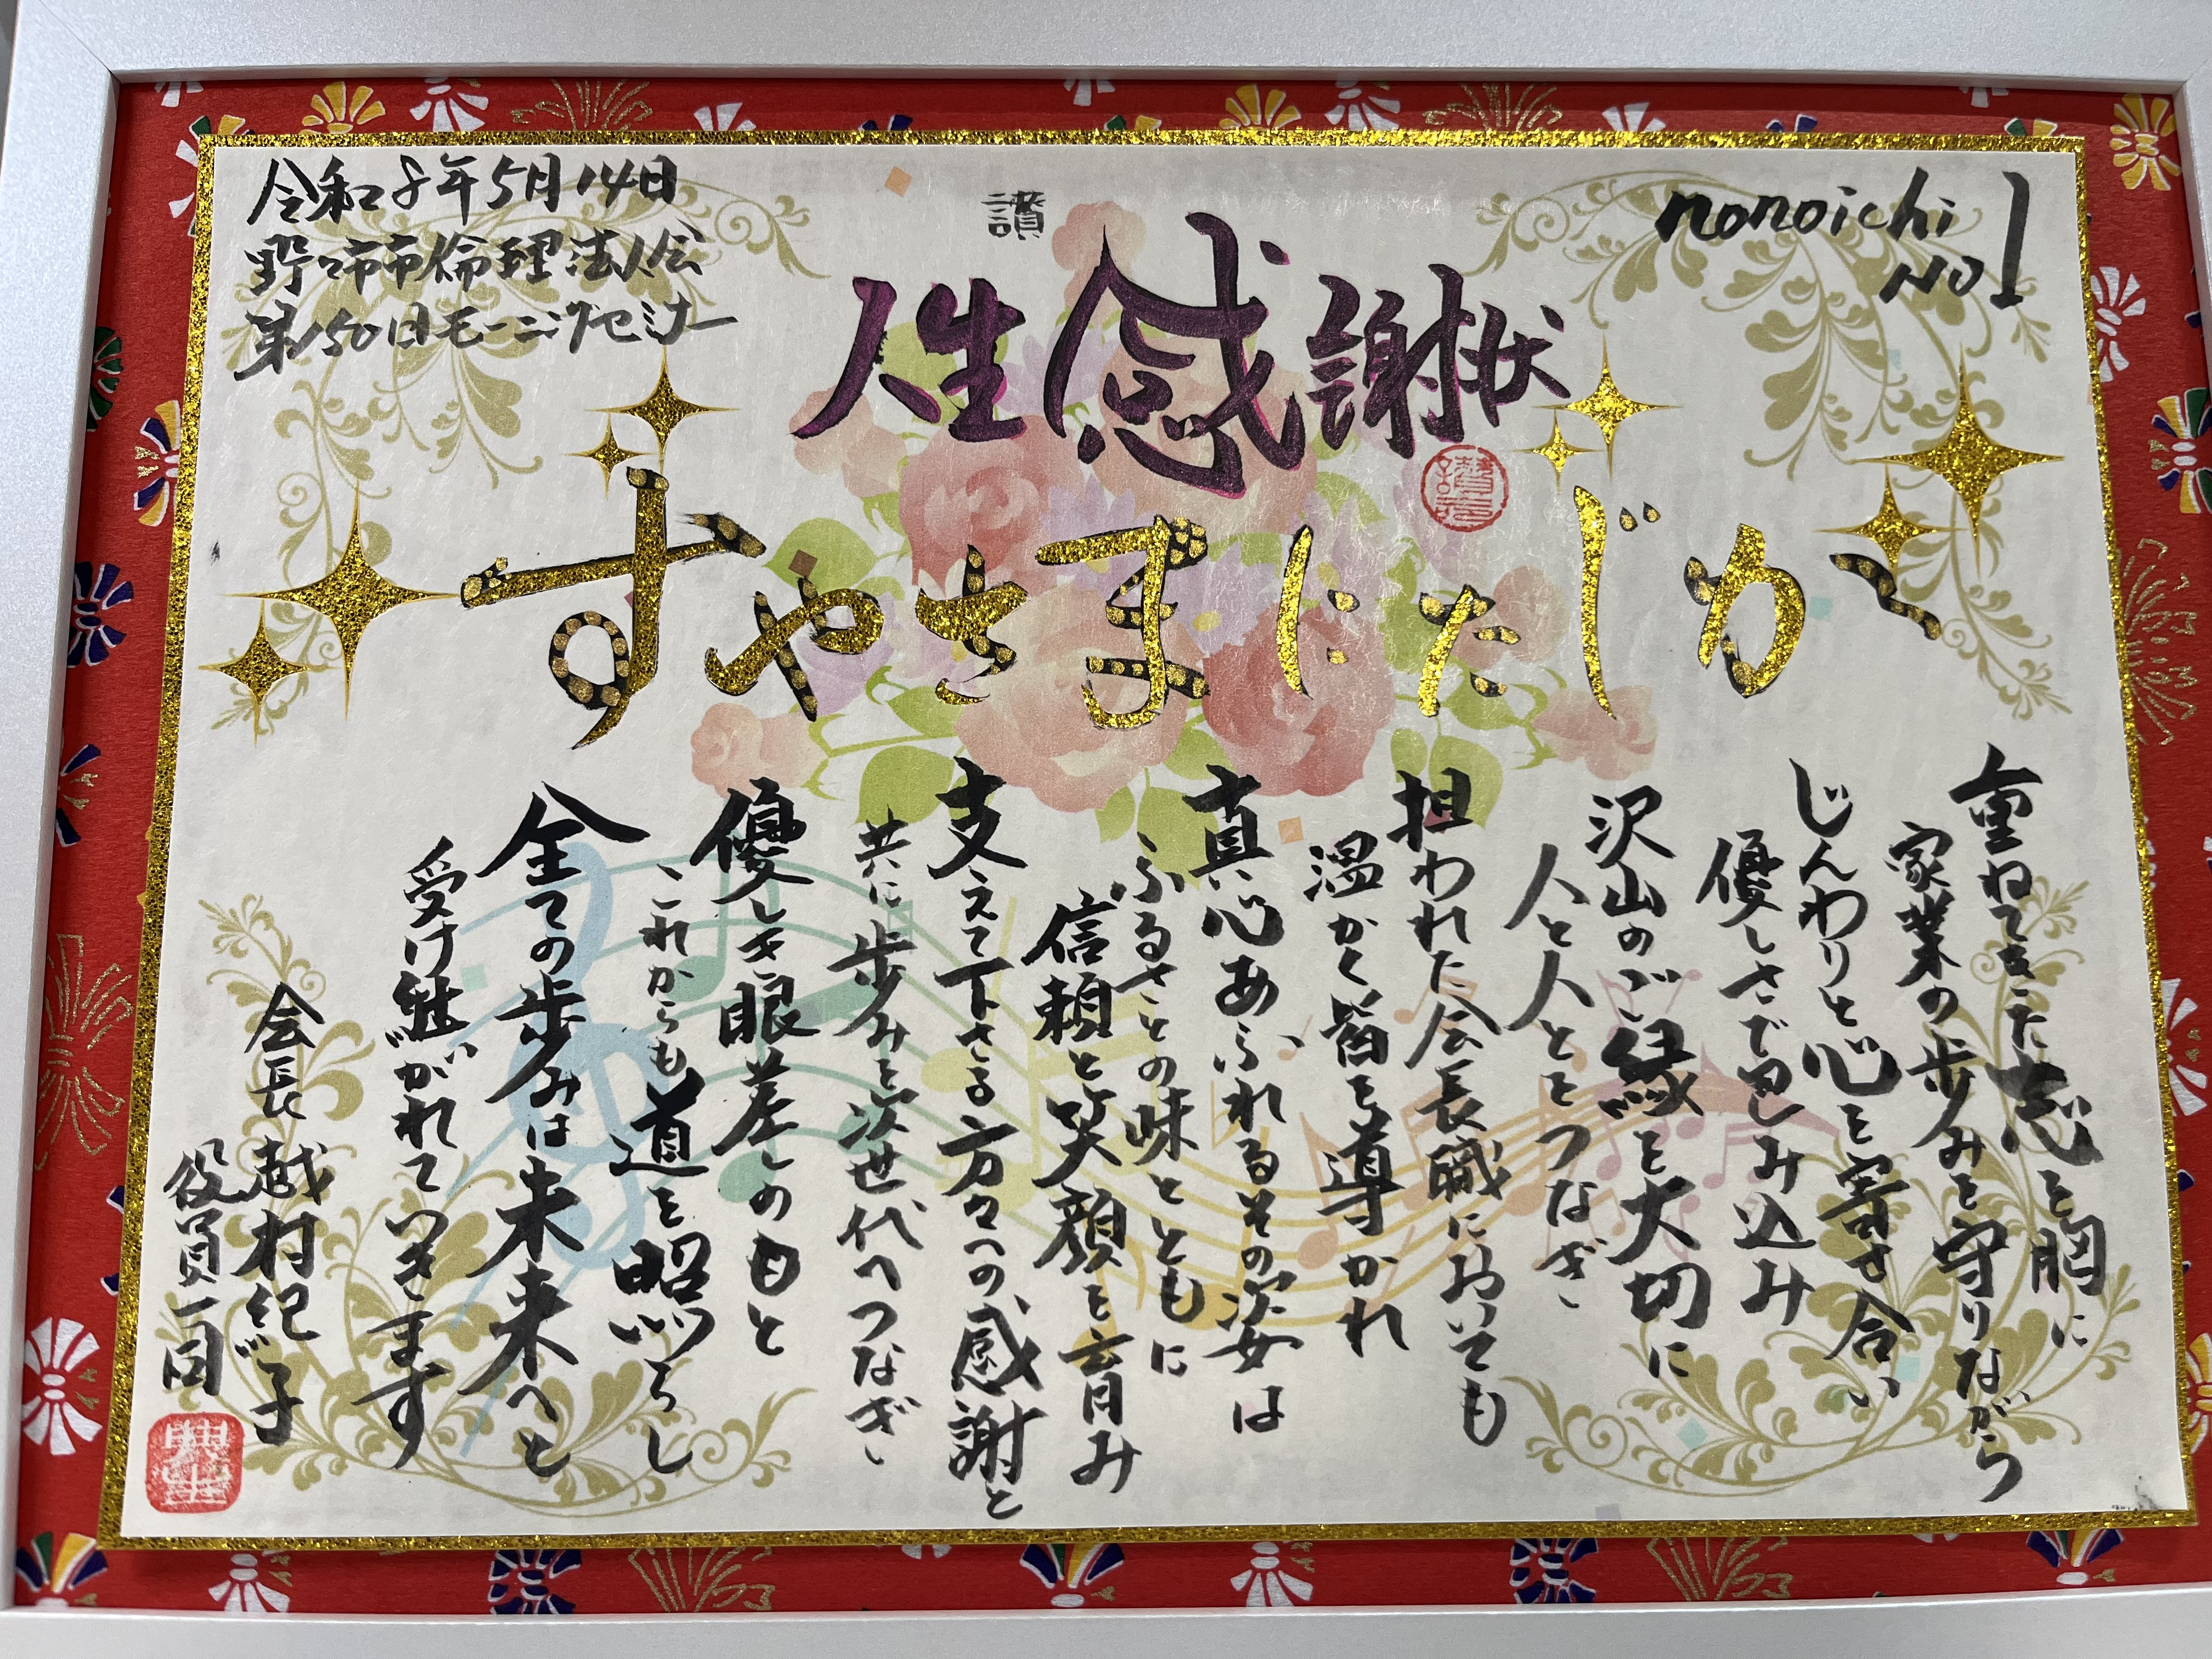 令和8年5月14日
野々市市倫理法人会
第150回モーニングセミナー
nonoichi
NO1
讃
人生感謝状
かじたにまさやす
重ねてきた志を胸に
家業の歩みを守りながら
じんわりと心を寄せ合い
優しさで包み込み
沢山のご縁を大切に
人と人とをつなぎ、
担われた会長職においても
温かく皆を導かれ
真心あふれるその姿は
ふるさとの味とともに
信頼と笑顔を育み
支えて下さる方々への感謝と
共に歩みを次世代へつなぎ、
優しき眼差しのもと
これからも道を照らし
全ての歩みは未来へと
受け継がれていきます
会長 越村
役員一同